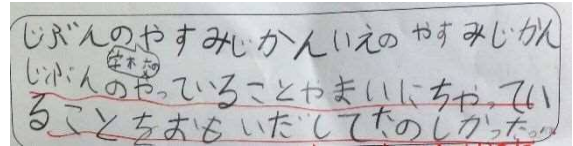 じぶんのやすみじかんいえのやすみじかん
じぶんのやっていることやまいにちやってい
ることをおもいだしてたのしかった。